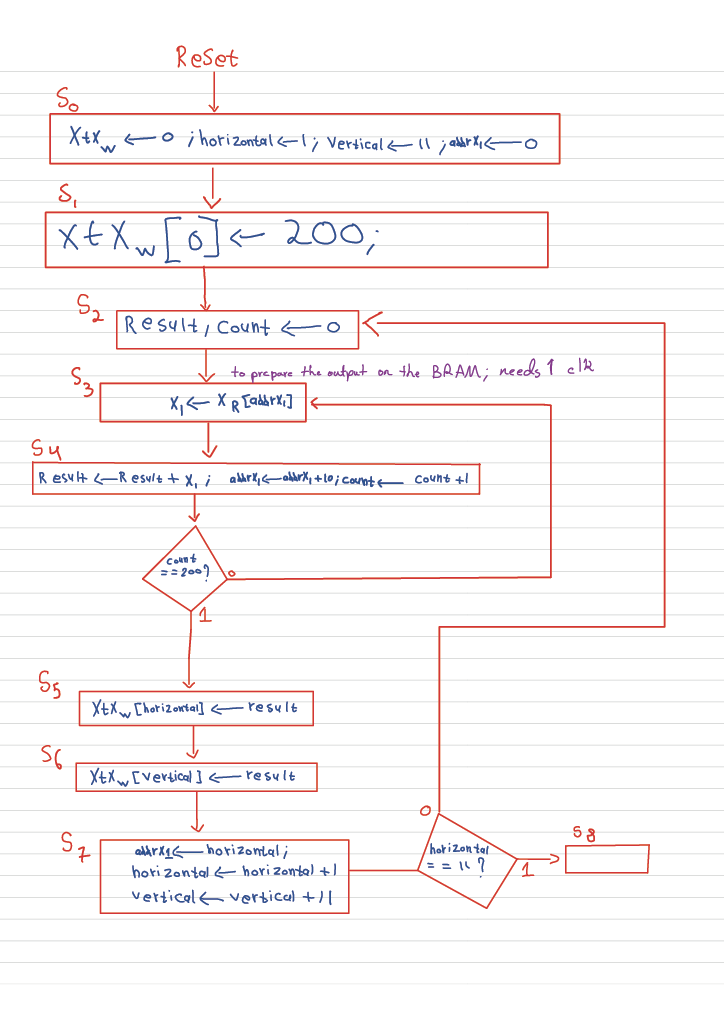 ReSet
S0
XtXw ← 0 ; horizontal ← 1; Vertical ← 11 ; addrX1 ← 0
S1
XtXw[0] ← 200;
S2
Result, Count ← 0
to prepare the output on the BRAM; needs 1 clk
S3
X1 ← XR[addrX1]
S4
Result ← Result + X1 ; addrX1 ← addrX1+10; count ← count +1
count
==200?
0
1
S5
XtXw[horizontal] ← result
S6
XtXw[vertical] ← result
S7
addrX1 ← horizontal;
horizontal ← horizontal +1
vertical ← vertical +11
0
horizontal
== 11?
1
S8